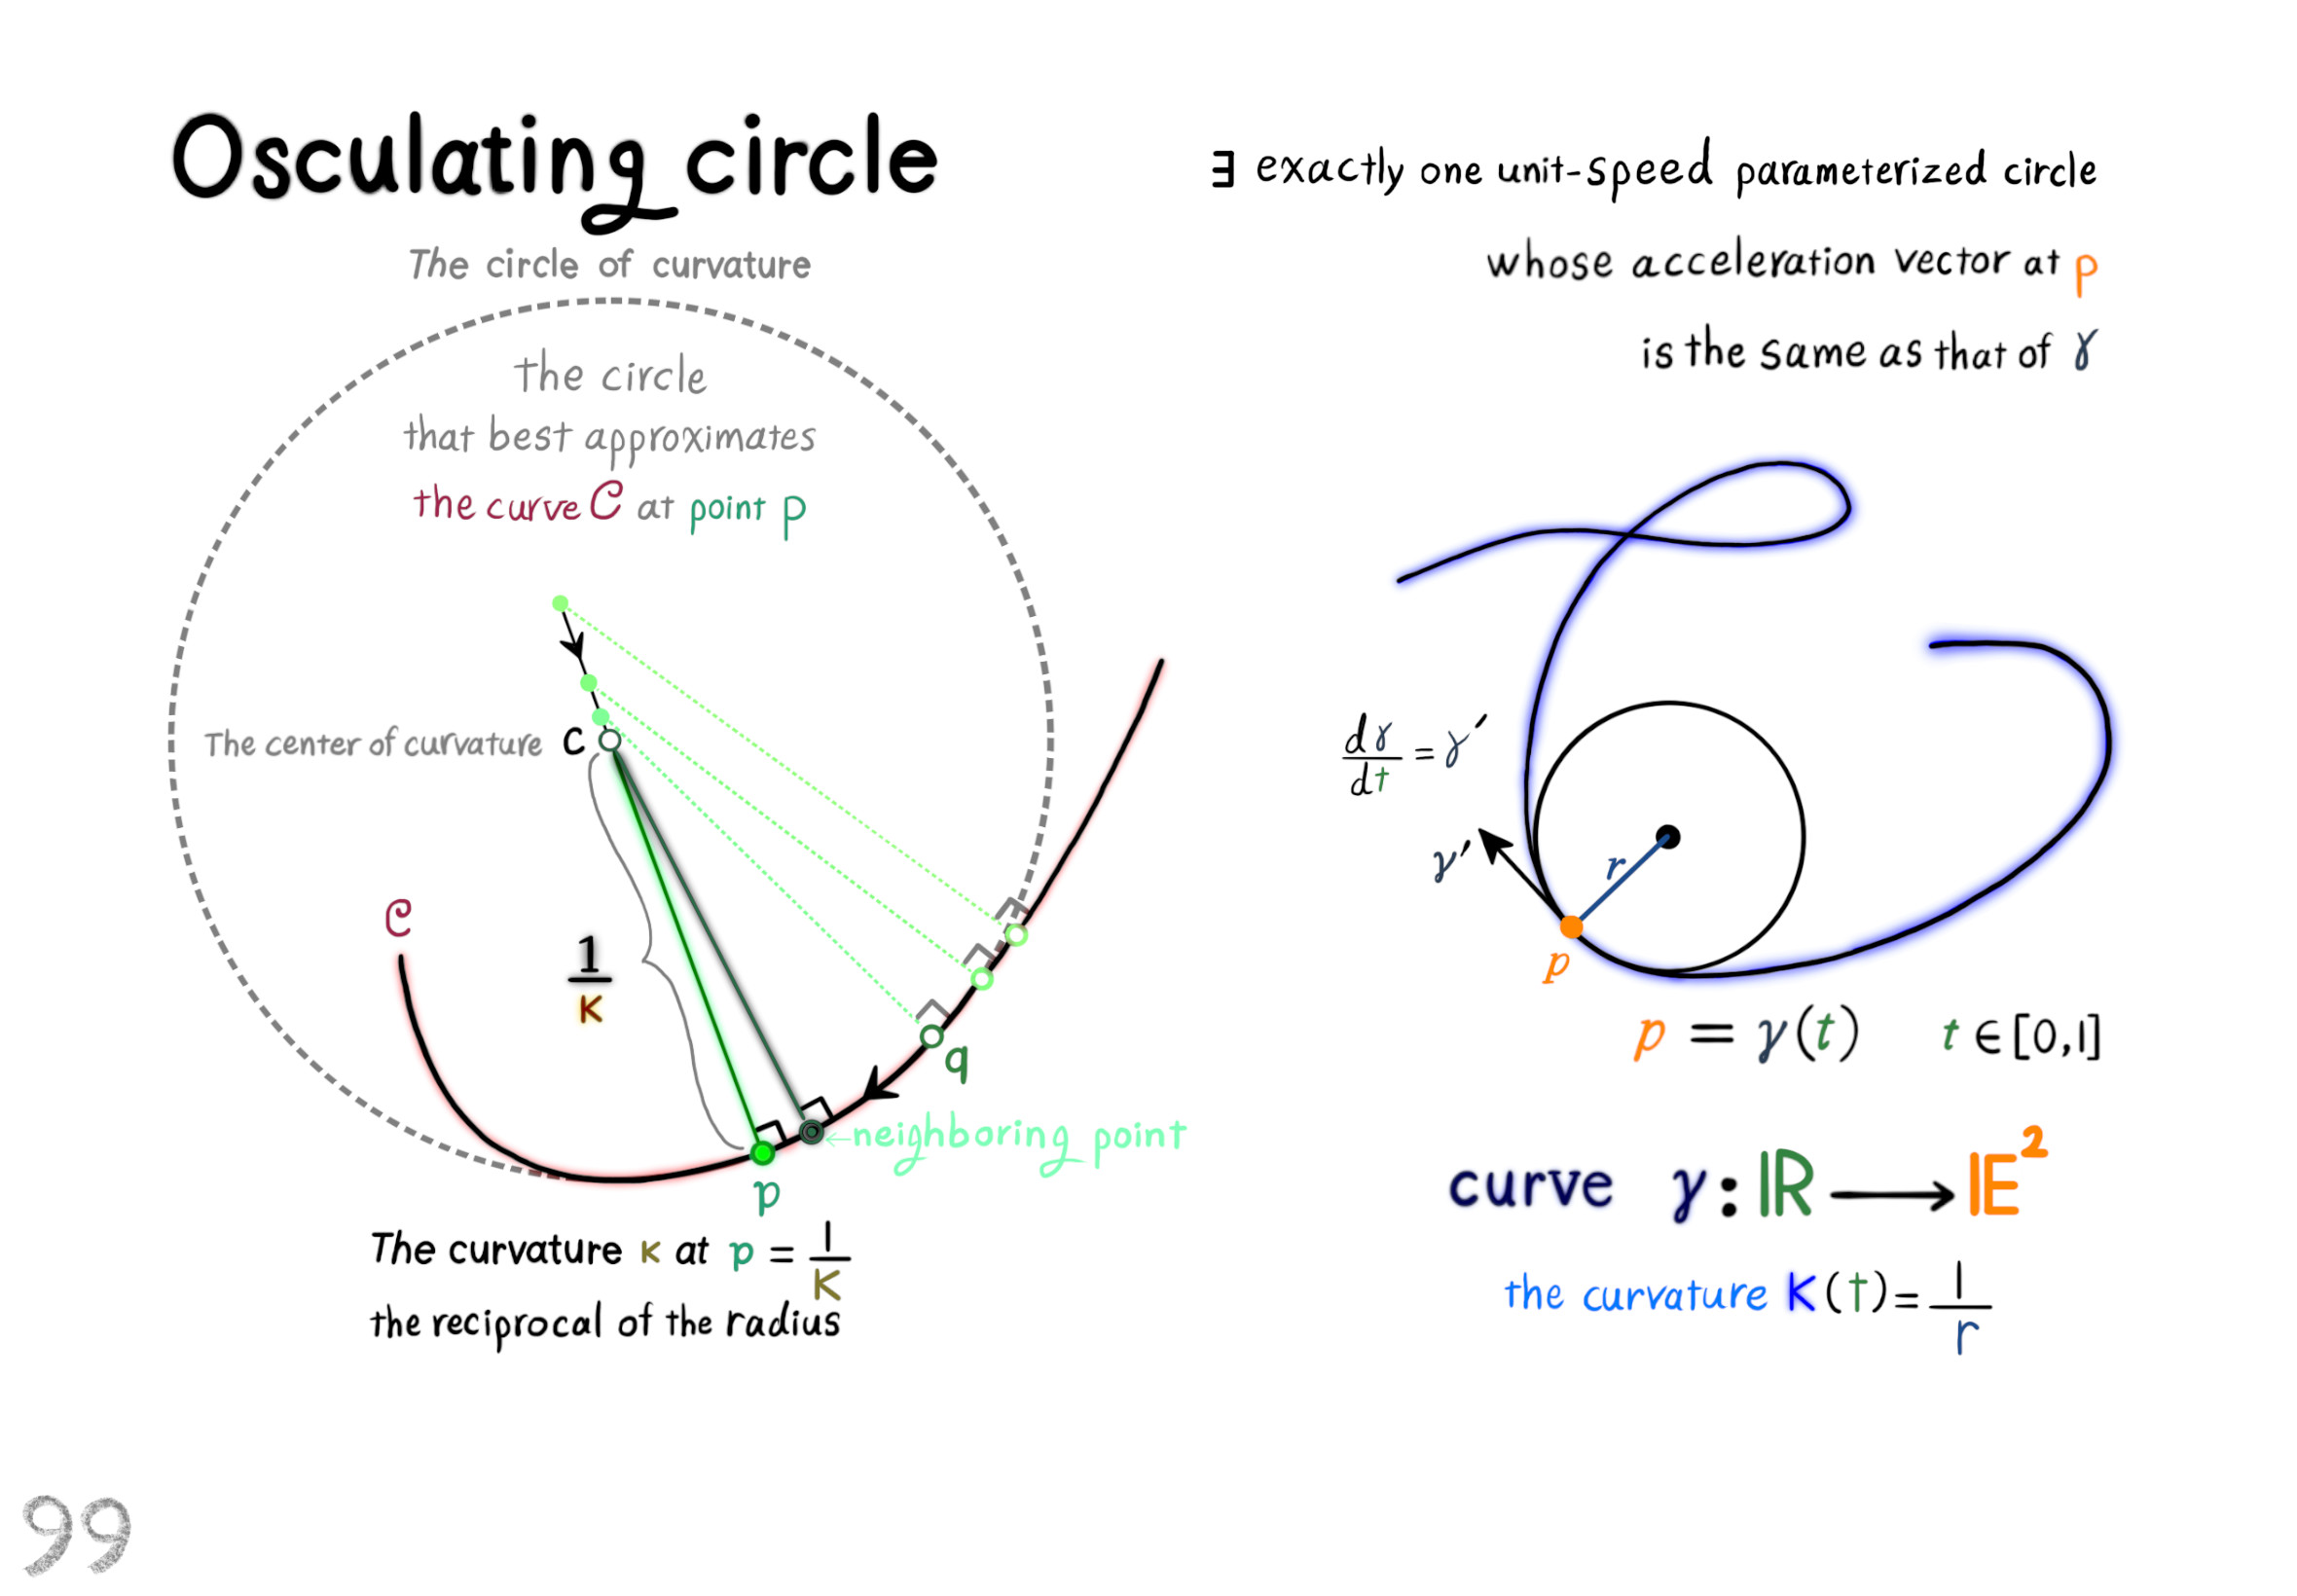 Osculating circle
The circle of curvature
the circle
that best approximates
the curve C at point p
The center of curvature c
C
1/κ
q
←neighboring point
p
The curvature κ at p = 1/K
the reciprocal of the radius
∃ exactly one unit-speed parameterized circle
whose acceleration vector at p
is the same as that of γ
dγ/dt = γ′
γ′
r
p
p = γ(t) t ∈ [0,1]
curve γ : ℝ ⟶ 𝔼²
the curvature K(t) = 1/r
99